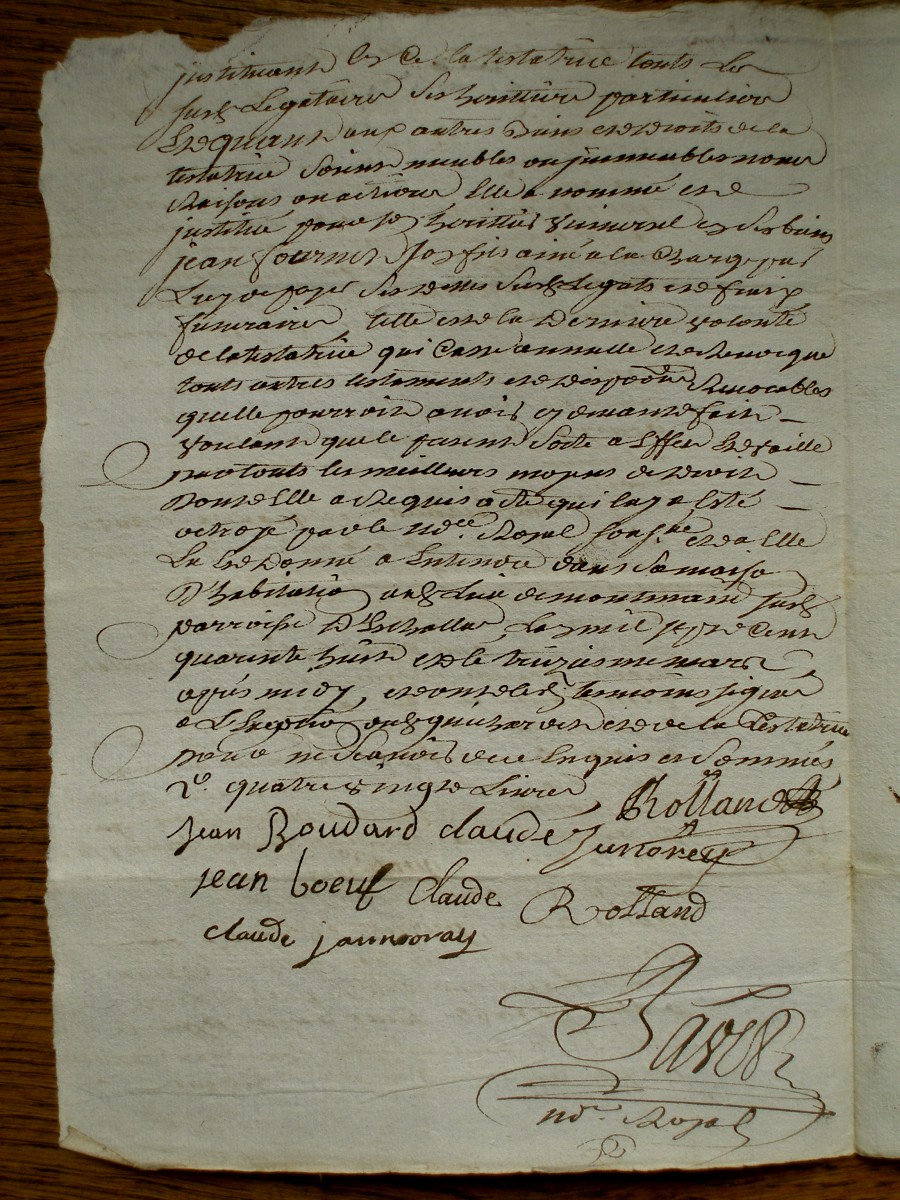 instituant en ce la testatrice touts les
susd legataires ses herittiers particuliers
Et quant aux autres biens et droits de la
testatrice soient meubles ou immeubles noms
Raisons ou actions Elle a nommé et
institué pour so heritier universel en ses biens
jean fournel son fils ainé a la charge par
Luy de payer ses dettes susd Legats et fraix
funeraires, telle est la derniere volonté
de la testatrice qui casse annulle et revocque
touts autres testaments et disp.ons Revocables
quelle pourroit avoir cy devant fait
voulant que le present sorte a Effet Et vaille
par touts les meilleurs moyens de droit
dont Elle a Requis acte qui luy a Esté
octroyé par le no.re Royal sous.né et a Elle
Lu Et donné a Entendre dans sa maison
D'habitation aud lieu de montmain susd
parroisse D'Echallas, L'an mil sept cent
quarente huit et le treizieme mars
après midy, et ont lesd temoins signé
a L'Exeption et de la testatrice
pour ne sçavoir de ce Enquis et sommés
quatre vingt Livres
Rolland
jean Boudard claude junorey
jean boeuf claude Rolland
claude jaunoray
Favre
no.re Royal